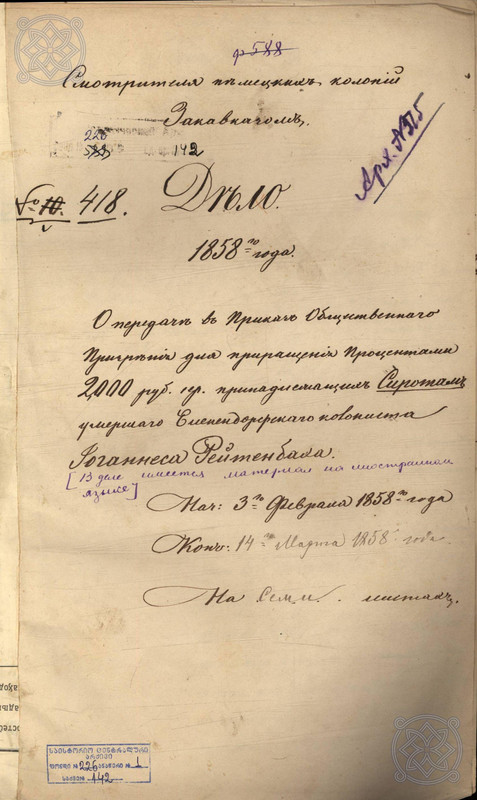 ф588
Смотрителя нѣмецкихъ колоній
Закавказомъ.
226
142
Арх. №325
№ 10. 418.
Дѣло.
1858го года.
О передачѣ въ Приказъ Общественнаго
Призрѣнія для приращенія процентами
2,000 руб. сер. принадлежащихъ Сиротамъ
умершаго Еленендорфскаго колониста
Іоганнеса Рейтенбаха.
[В деле имеется материал на иностранном
языке]
Нач: 3го Февраля 1858го года
Конч: 14го Марта 1858 года.
На Семи листахъ.
საისტორიო ცენტრალური
არქივი
ფონდი № 226 ანაწერი № 1
საქმე № 142